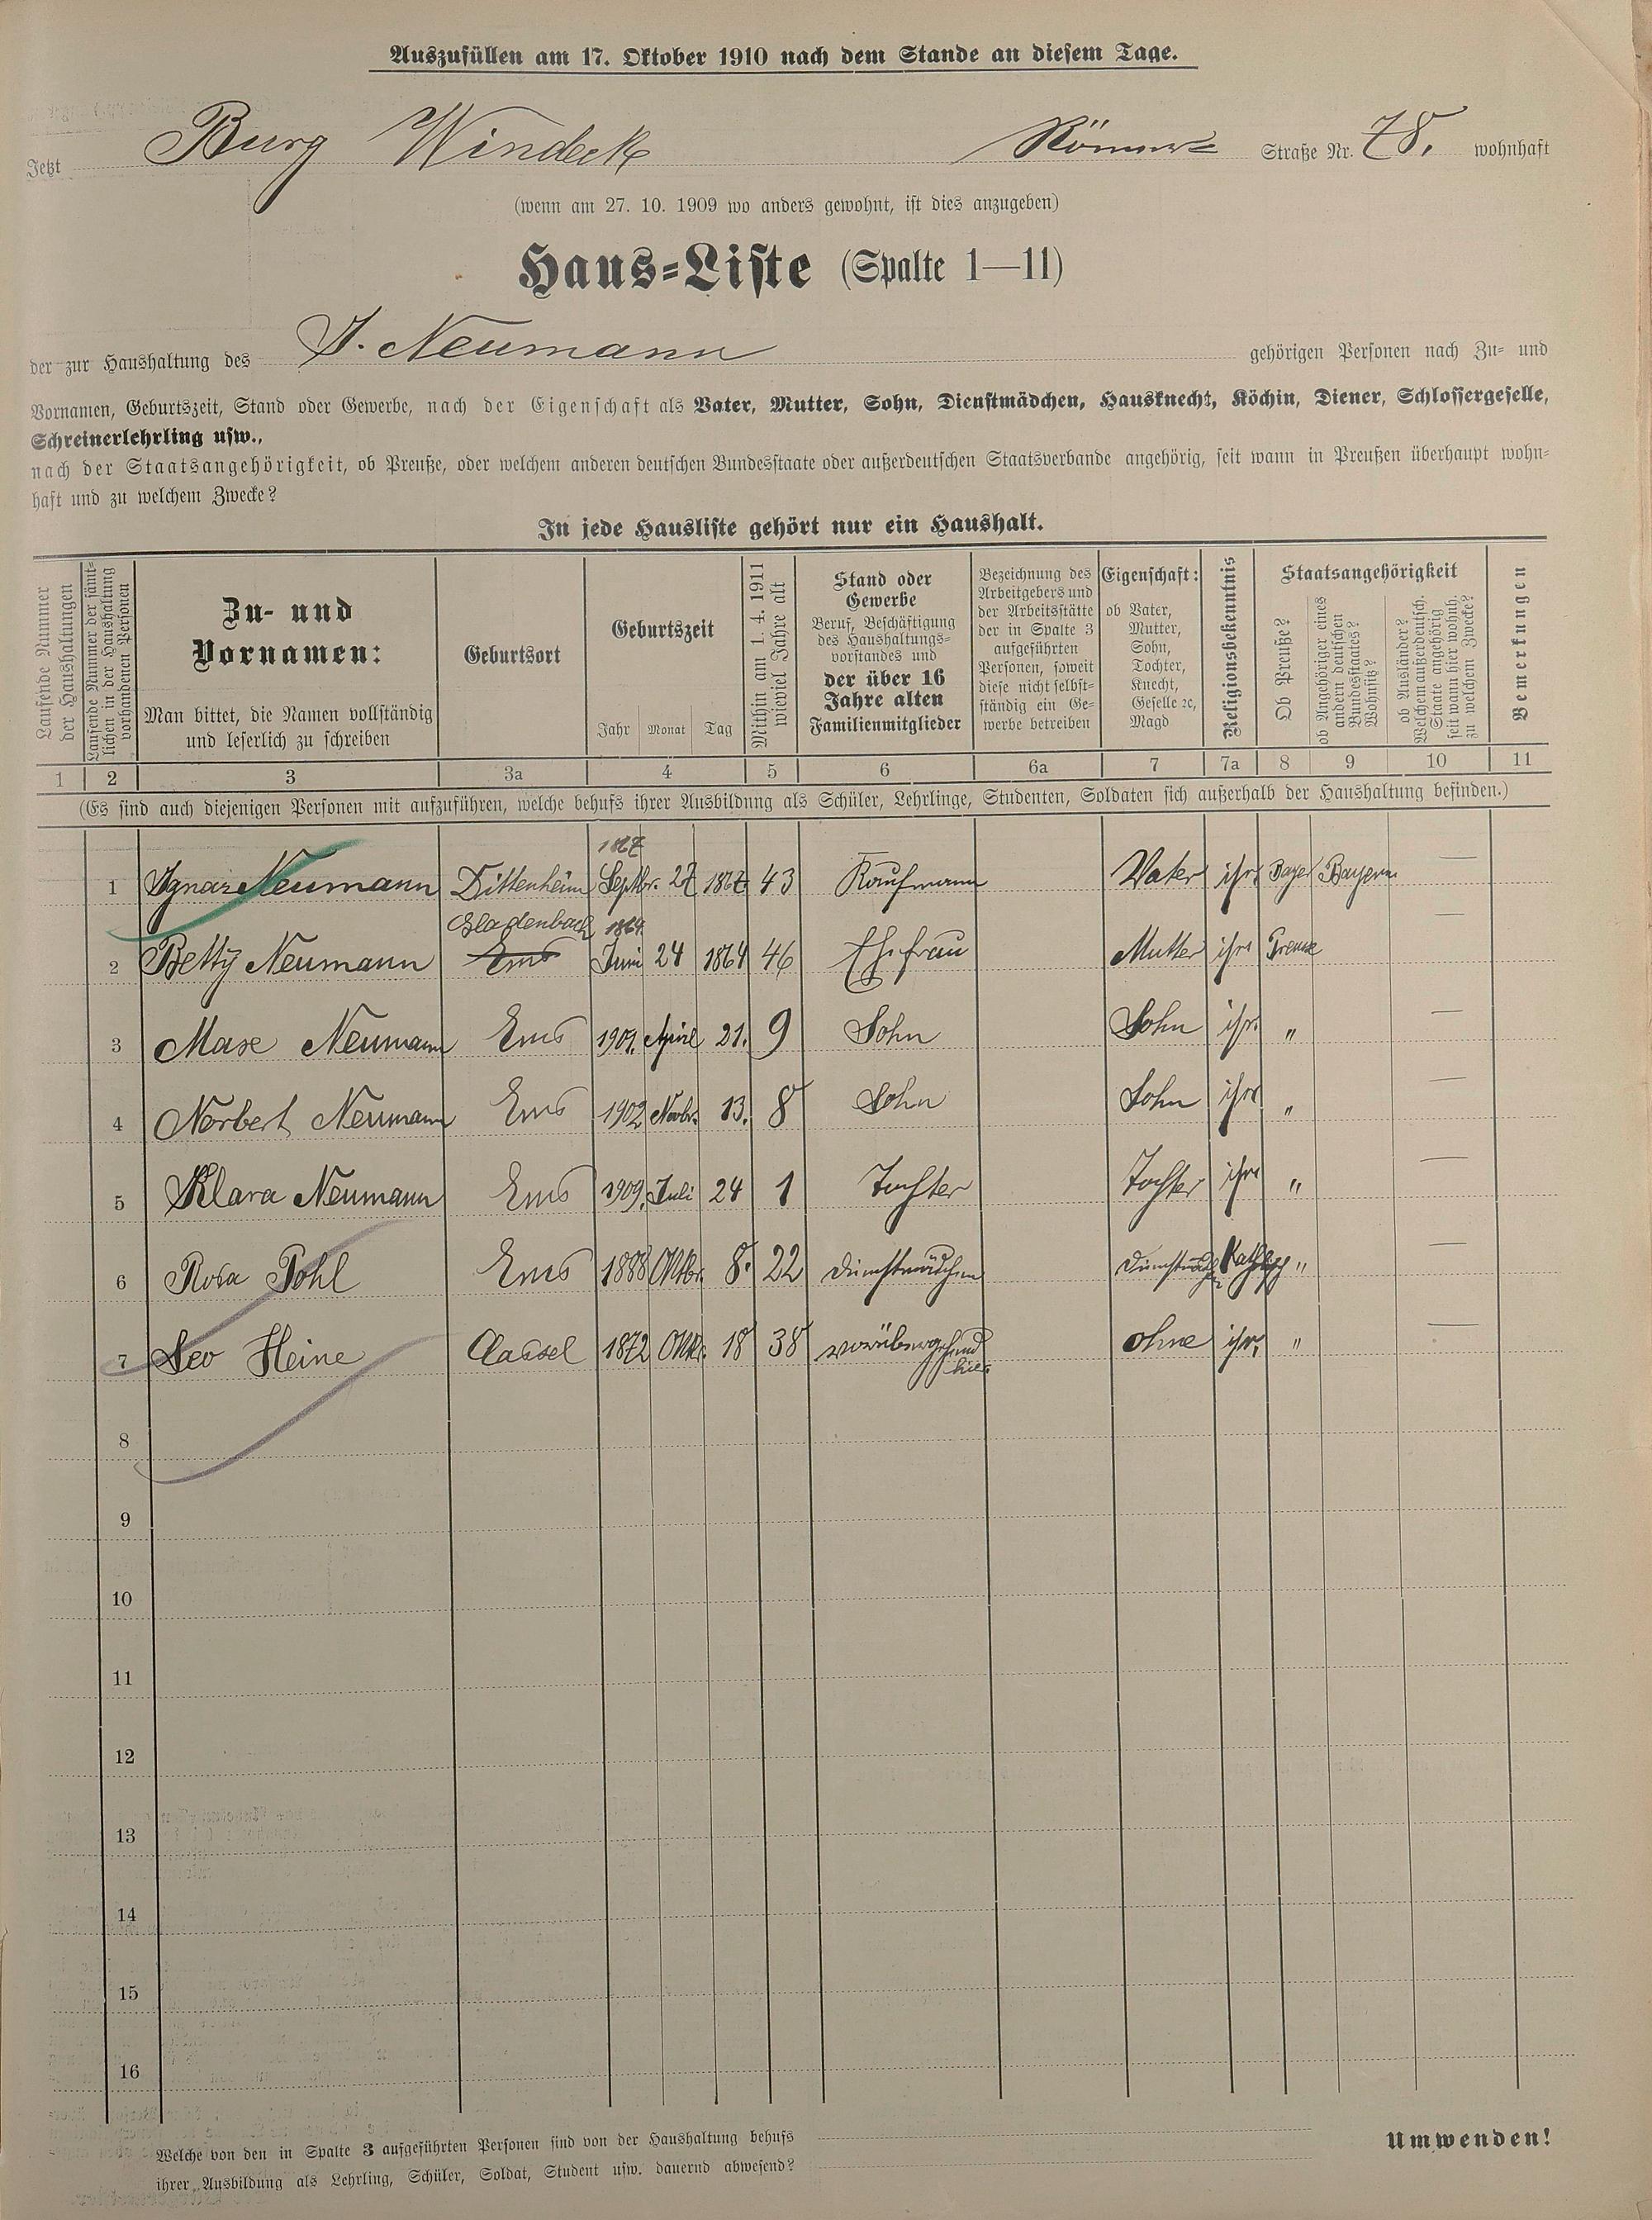 Auszufüllen am 17. Oktober 1910 nach dem Stande an diesem Tage.
Jetzt Burg Windeck Römer= Straße Nr. 78. wohnhaft
(wenn am 27. 10. 1909 wo anders gewohnt, ist dies anzugeben)
Haus=Liste (Spalte 1—11)
der zur Haushaltung des J. Neumann gehörigen Personen nach Zu= und
Vornamen, Geburtszeit, Stand oder Gewerbe, nach der Eigenschaft als Vater, Mutter, Sohn, Dienstmädchen, Hausknecht, Köchin, Diener, Schlossergeselle,
Schreinerlehrling usw.,
nach der Staatsangehörigkeit, ob Preuße, oder welchem anderen deutschen Bundesstaate oder außerdeutschen Staatsverbande angehörig, seit wann in Preußen überhaupt wohn=
haft und zu welchem Zwecke?
In jede Hausliste gehört nur ein Haushalt.
Laufende Nummer
der Haushaltungen
Laufende Nummer der sämt=
lichen in der Haushaltung
vorhandenen Personen
Zu- und
Vornamen:
Man bittet, die Namen vollständig
und leserlich zu schreiben
Geburtsort
Geburtszeit
Jahr Monat Tag
Mithin am 1. 4. 1911
wieviel Jahre alt
Stand oder
Gewerbe
Beruf, Beschäftigung
des Haushaltungs=
vorstandes und
der über 16
Jahre alten
Familienmitglieder
Bezeichnung des
Arbeitgebers und
der Arbeitsstätte
der in Spalte 3
aufgeführten
Personen, soweit
diese nicht selbst=
ständig ein Ge=
werbe betreiben
Eigenschaft:
ob Vater,
Mutter,
Sohn,
Tochter,
Knecht,
Geselle ꝛc,
Magd
Religionsbekenntnis
Staatsangehörigkeit
Ob Preuße?
ob Angehöriger eines
andern deutschen
Bundesstaates?
Wohnsitz?
ob Ausländer?
Welchem außerdeutsch.
Staate angehörig
seit wann hier wohnh.
zu welchem Zwecke?
Bemerkungen
1 2 3 3a 4 5 6 6a 7 7a 8 9 10 11
(Es sind auch diejenigen Personen mit aufzuführen, welche behufs ihrer Ausbildung als Schüler, Lehrlinge, Studenten, Soldaten sich außerhalb der Haushaltung befinden.)
1867
1 Ignaz Neumann Dittenheim Septbr. 27 1867 43 Kaufmann Vater isr. Bayer Bayern —
Gladenbach 1864.
2 Betty Neumann Ems Juni 24 1864 46 Ehefrau Mutter isr. Preuße —
3 Maxe Neumann Ems 1901. April 21. 9 Sohn Sohn isr. " —
4 Norbert Neumann Ems 1902 Novbr. 13. 8 Sohn Sohn isr. " —
5 Klara Neumann Ems 1909. Juli 24 1 Tochter Tochter isr. " —
6 Rosa Pohl Ems 1888 Oktbr. 8. 22 Dienstmädchen Dienstmädchen " —
7 Leo Heine 1872 Oktbr. 18 38 vorübergehend ohne isr. " —
hier
8
9
10
11
12
13
14
15
16
Welche von den in Spalte 3 aufgeführten Personen sind von der Haushaltung behufs
ihrer Ausbildung als Lehrling, Schüler, Soldat, Student usw. dauernd abwesend?
Umwenden!